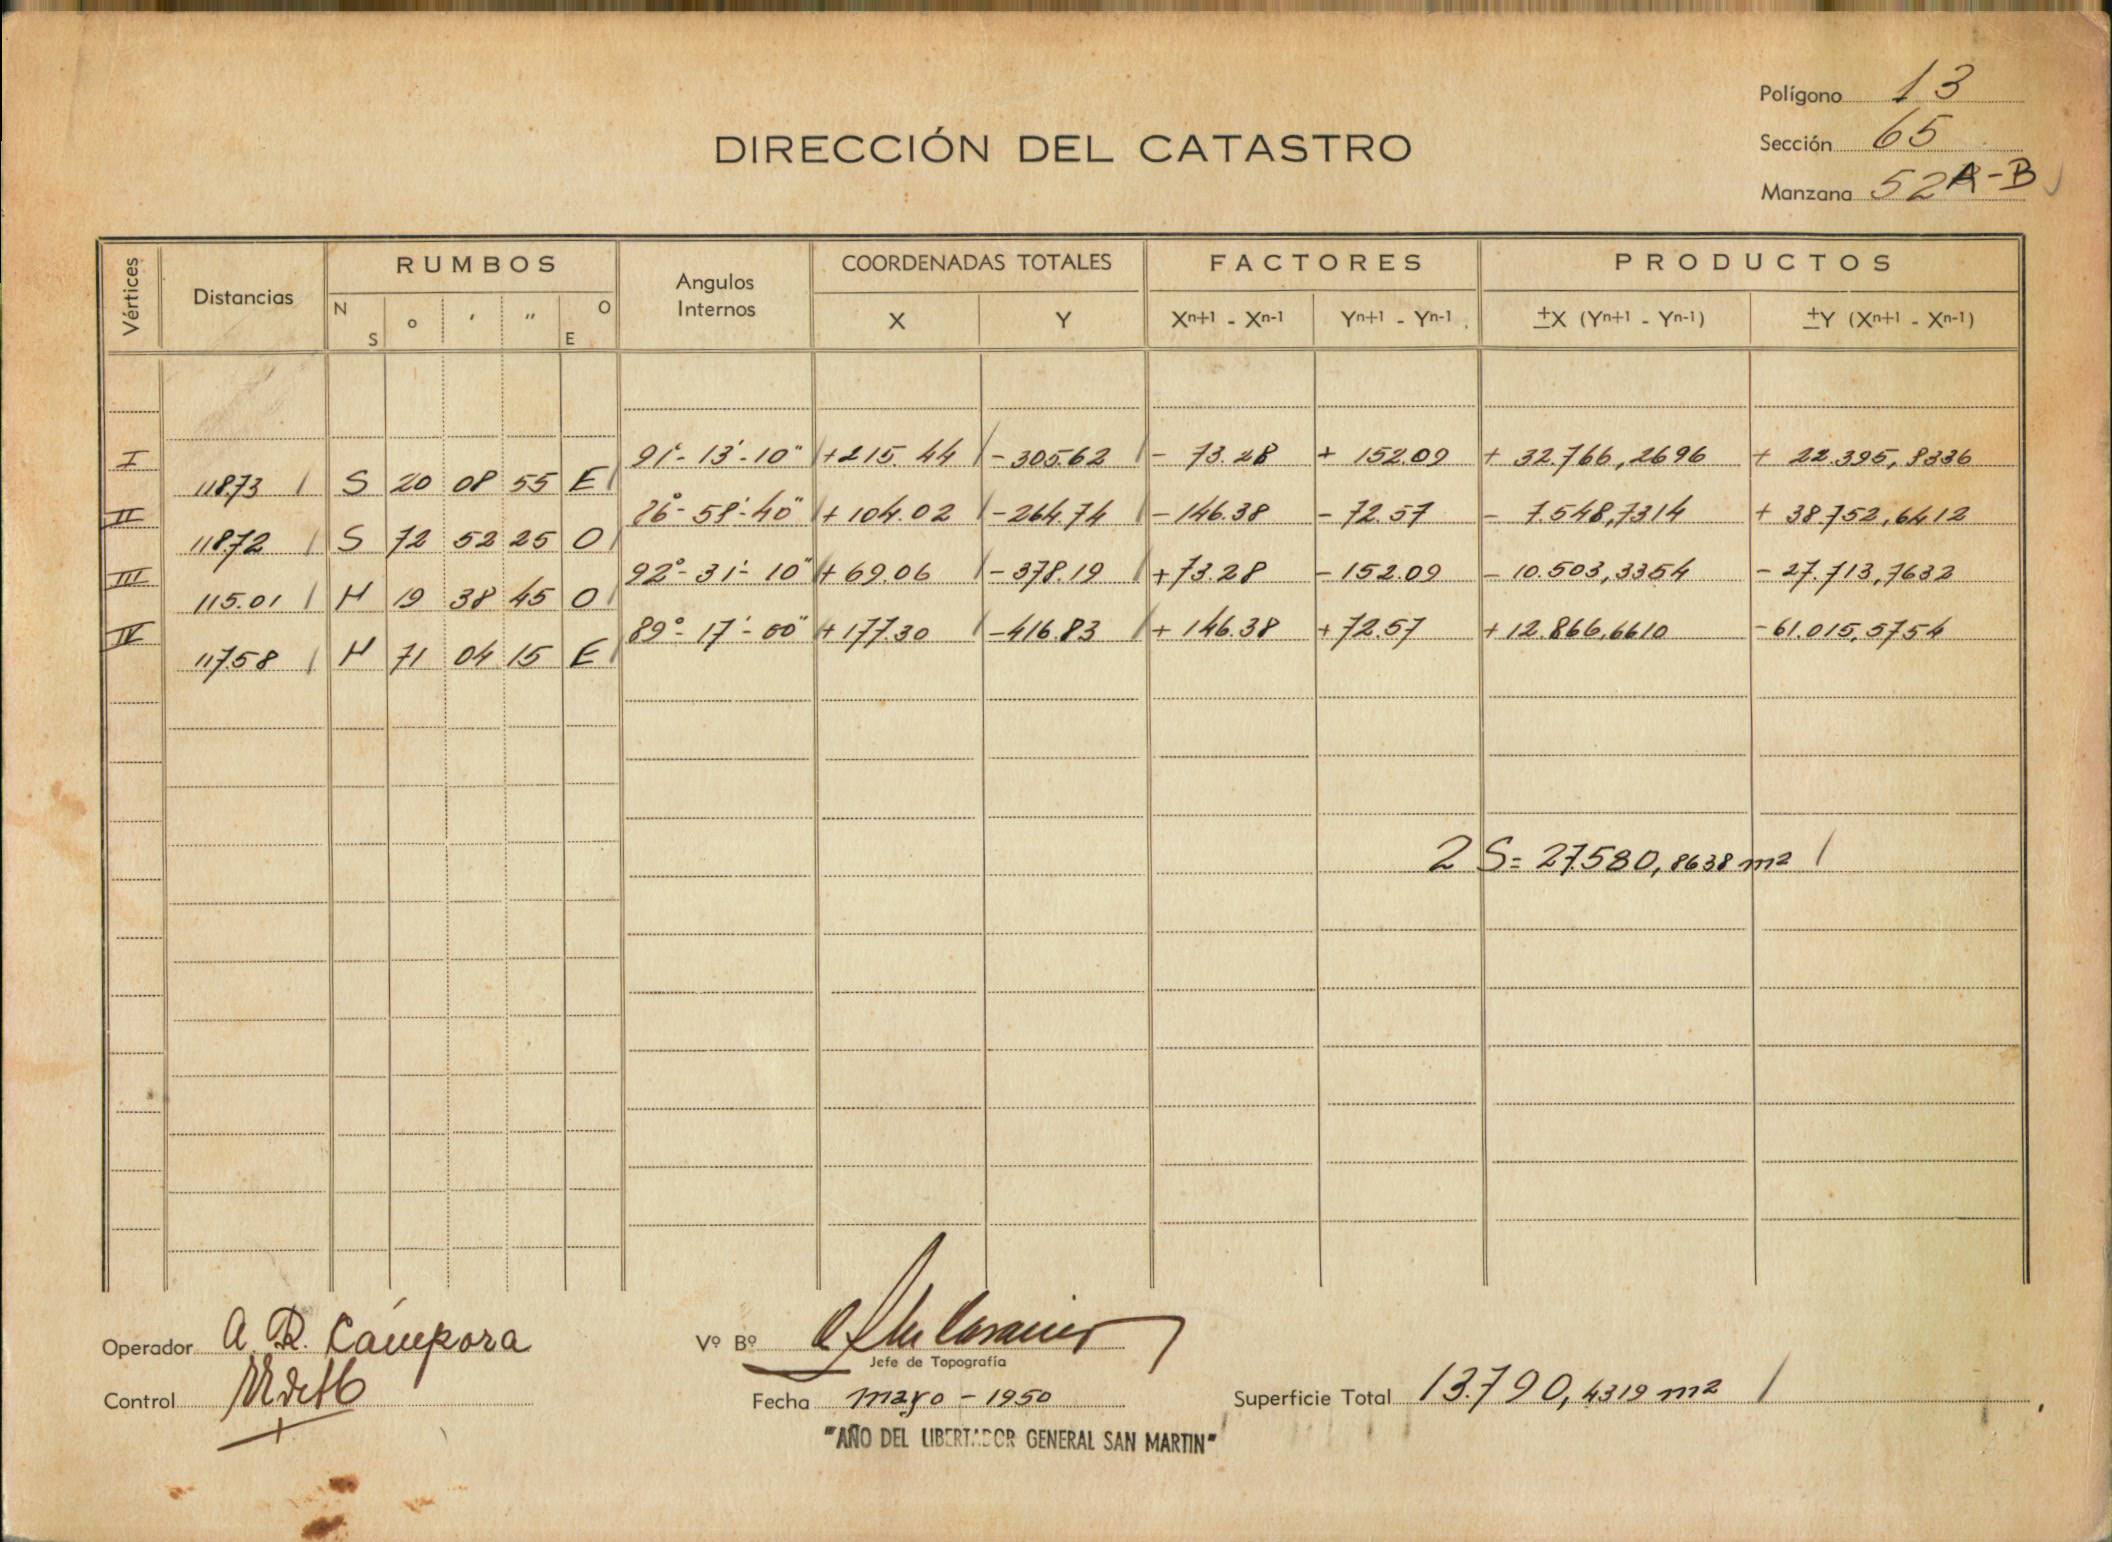 Polígono 13
DIRECCIÓN DEL CATASTRO
Sección 65
Manzana 52 A-B
Vértices Distancias RUMBOS Angulos Internos COORDENADAS TOTALES FACTORES PRODUCTOS
N S ° ' " O E X Y Xn+1 - Xn-1 Yn+1 - Yn-1 ±X (Yn+1 - Yn-1) ±Y (Xn+1 - Xn-1)
I 91°-13'-10" +215.44 -305.62 - 73.28 + 152.09 + 32.766,2696 + 22.395,8336
118.73 S 20 08 55 E
II 86°-58'-40" +104.02 -264.74 -146.38 -72.57 - 7.548,7314 + 38.752,6412
118.72 S 72 52 25 O
III 92°-31'-10" +69.06 -378.19 +73.28 -152.09 - 10.503,3354 - 27.713,7632
115.01 N 19 38 45 O
IV 89°-17'-00" +177.30 -416.83 +146.38 +72.57 +12.866,6610 -61.015,5754
117.58 N 71 04 15 E
2 S= 27.580,8638 m2
Operador A. R. Cámpora
Vº Bº
Jefe de Topografía
Control
Fecha mayo - 1950
Superficie Total 13.790,4319 m2
"AÑO DEL LIBERTADOR GENERAL SAN MARTIN"